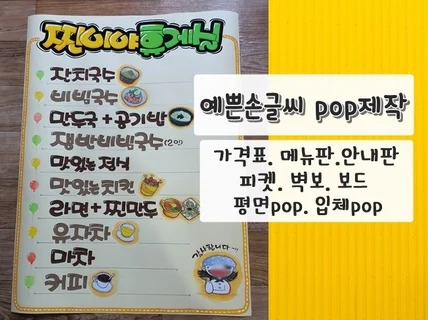 찐이야휴게실
잔치국수
비빔국수
만두국+공기밥
쟁반비빔국수(2인)
맛있는정식
맛있는치킨
라면+찐만두
유자차
마차
커피
감사합니다~
예쁜손글씨 pop제작
가격표. 메뉴판.안내판
피켓. 벽보. 보드
평면pop. 입체pop